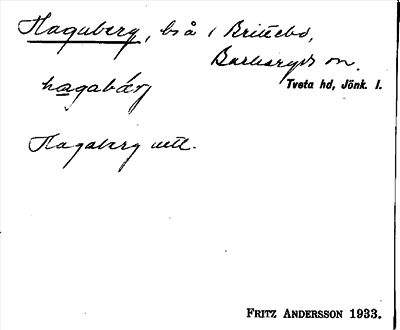 Hagaberg, bs å i Brittebo,
Barkeryds sn.
Tveta hd, Jönk. l.
hagabärj
Hagaberg uttl.
FRITZ ANDERSSON 1933.